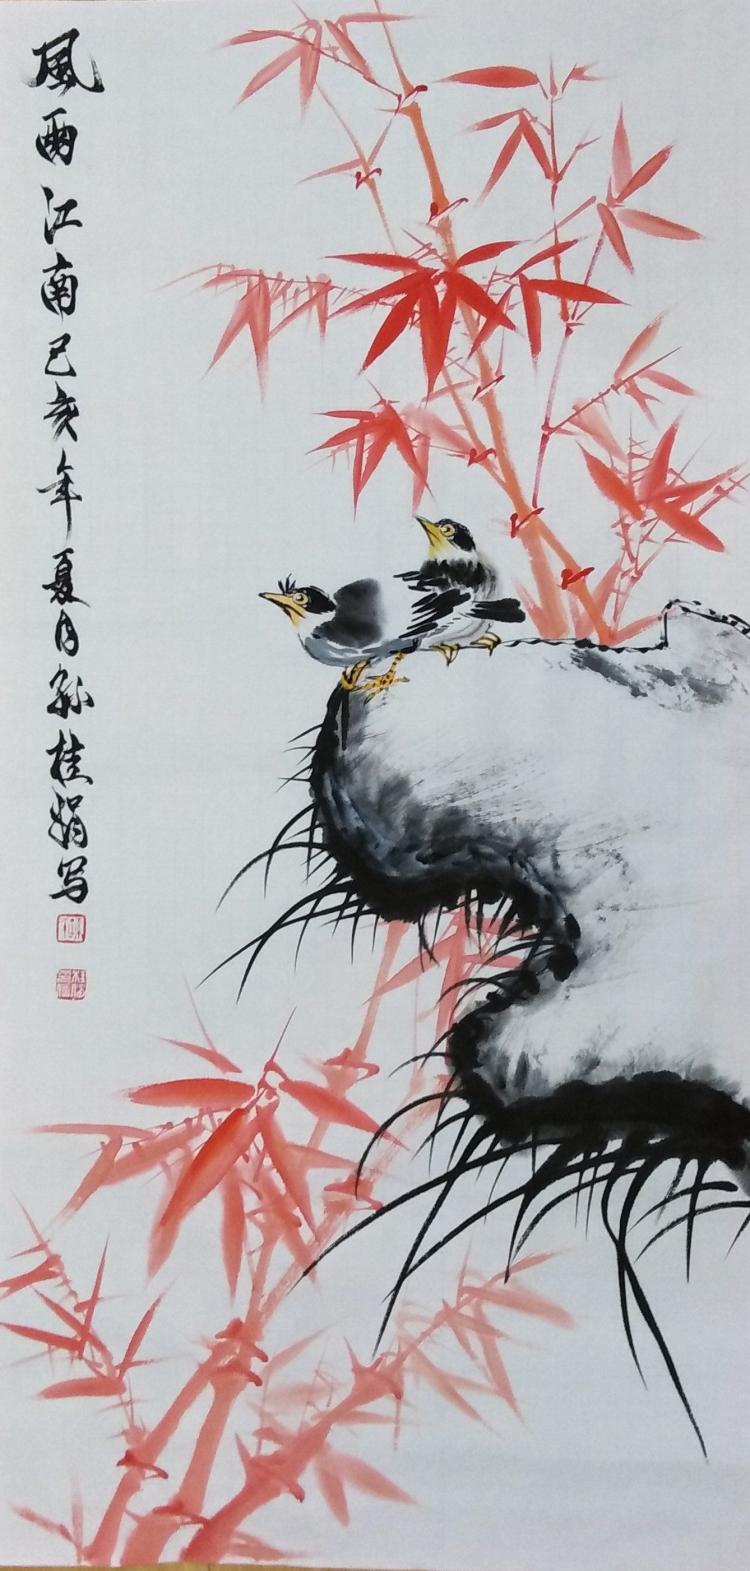 風雨江南己亥年夏月孫桂娟写